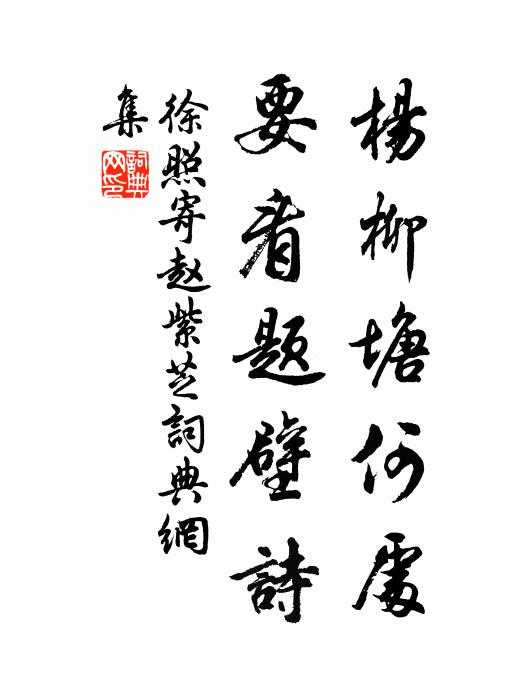 楊柳塘何處
要看題壁詩
徐照寄赵紫芝詞典網
集
詞典网印